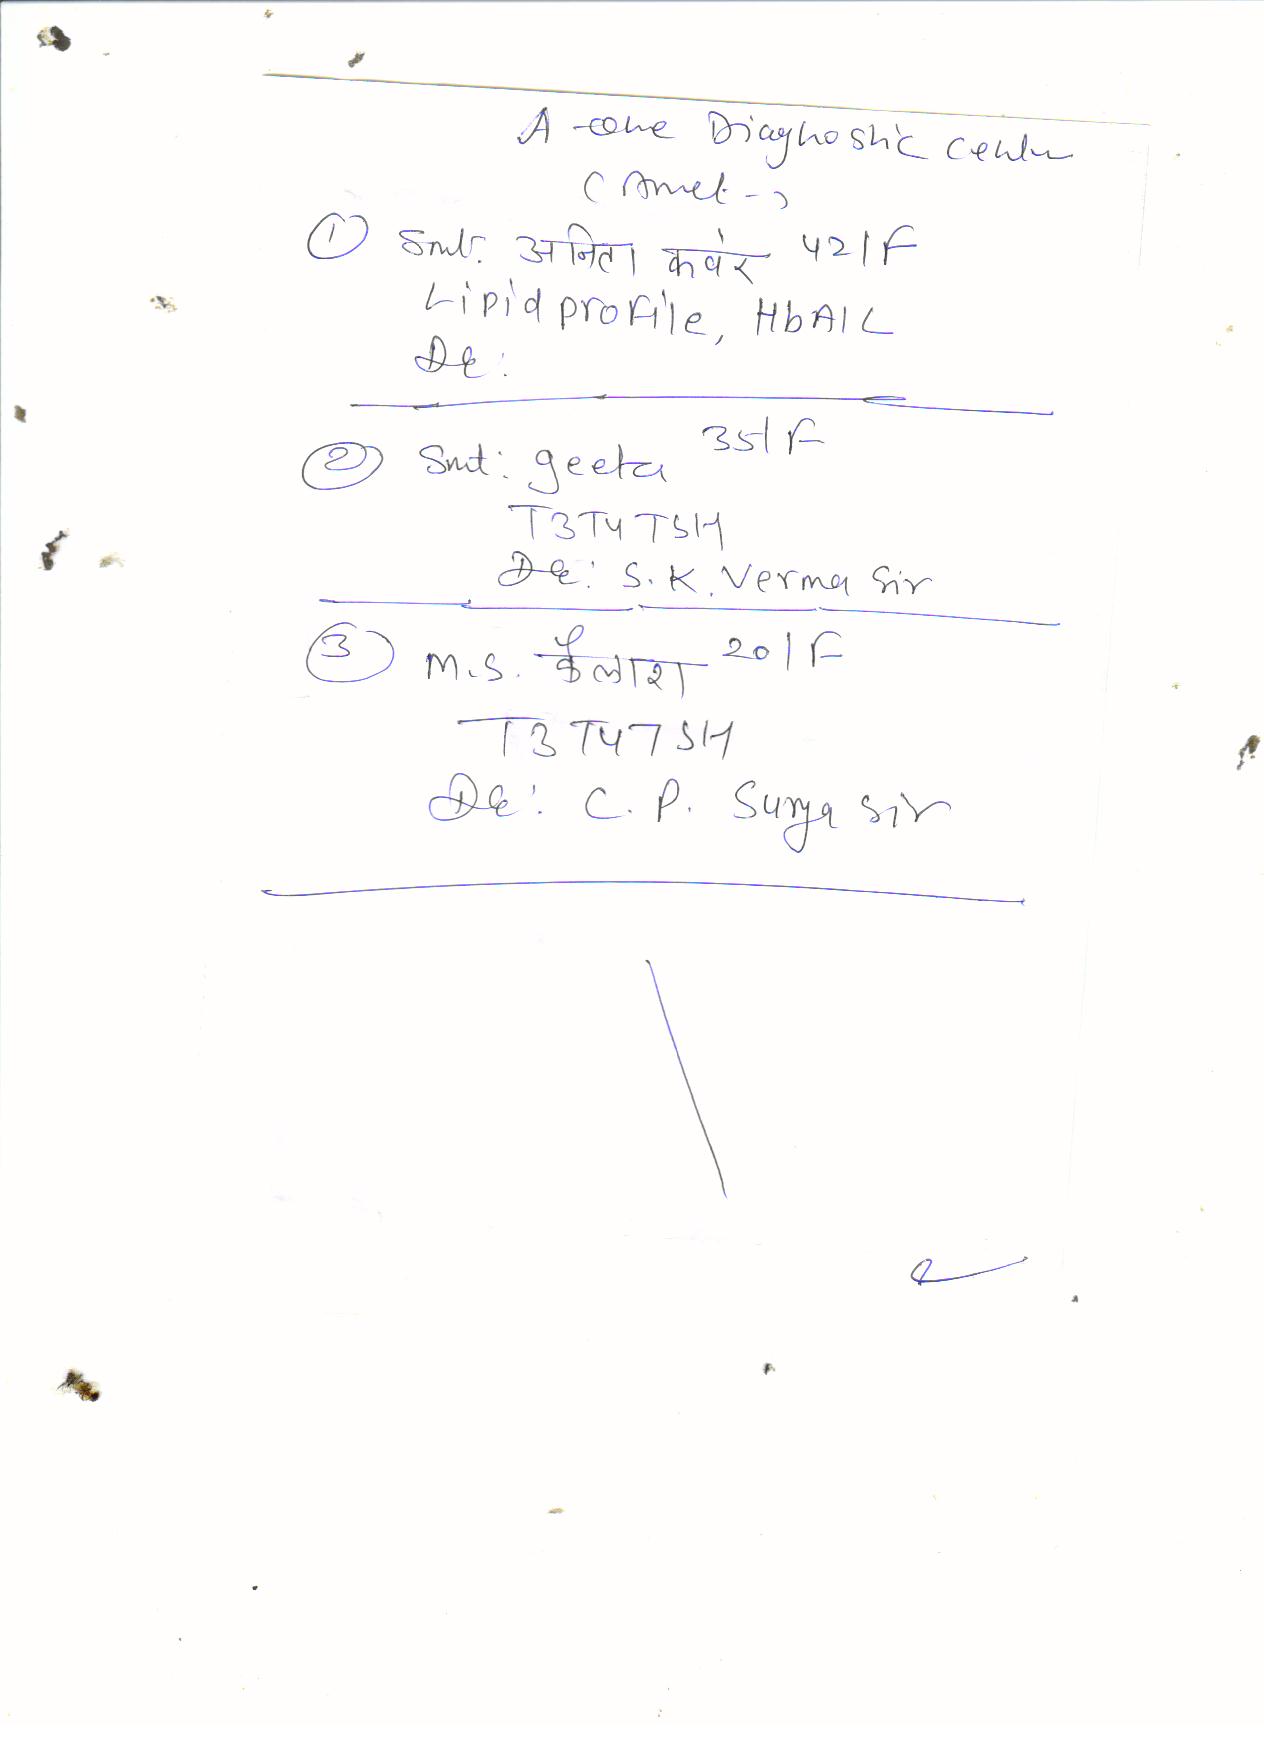 A-one Diagnostic Center
(Amet-)
① Smt. अनिता कवंर 42/F
Lipid profile, HbA1C
Dr:
② Smt: geeta 35/F
T3T4TSH
Dr: S.K. Verma Sir
③ M.S. कैलाश 20/F
T3T4TSH
Dr: C.P. Surya Sir